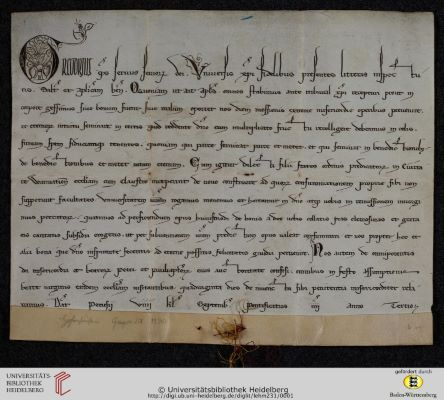 GREGORIUS eps servus servor dei. Universis xpi fidelibus presentes litteras inspectu
ris. Salt et aplicam ben. Quoniam ut ait apls omnes stabimus ante tribunal xpi recepturi prout in
corpore gessimus sive bonum fuerit sive malum oportet nos diem messionis extreme misericordie operibus prevenire
et eternorum intuitu seminare in terris quod reddente dno cum multiplicato fructu recolligere debeamus in celis
firmam spem fiduciamq tenentes quoniam qui parce seminat parce et metet et qui seminat in benedictionibus
de benedictionibus et metet vitam eternam. Cum igitur dilecti filii fratres ordinis predicatorum in
eccliam cum claustro inceperint de novo construere ad quorum consummationem proprie sibi non
suppetunt facultates universitatem vram rogamus monemus et hortamur in dno atq vobis in remissionem iniungi
mus peccatorum quatinus ad perficiendum opus huiusmodi de bonis a deo vobis collatis pias elemosinas et grata
eis caritatis subsidia erogetis ut per subventionem vram predictum opus valeat consummari et vos per hec et
alia bona que dno inspirante feceritis ad eterne possitis felicitatis gaudia pervenire. Nos autem de omnipotentis
dei misericordia et beatorum petri et pauli aplorum eius auctoritate confisi omnibus in festo assumptionis
beate virginis eandem ecclam visitantibus quadraginta dies de iniuncta sibi penitentia misericorditer rela
xamus Dat Perusii viii kl Septembr Pontificatus nri anno Tertio.
Gregor IX
UNIVERSITÄTS-
BIBLIOTHEK
HEIDELBERG
© Universitätsbibliothek Heidelberg
http://digi.ub.uni-heidelberg.de/diglit/lehm231/0001
gefördert durch
Baden-Württemberg